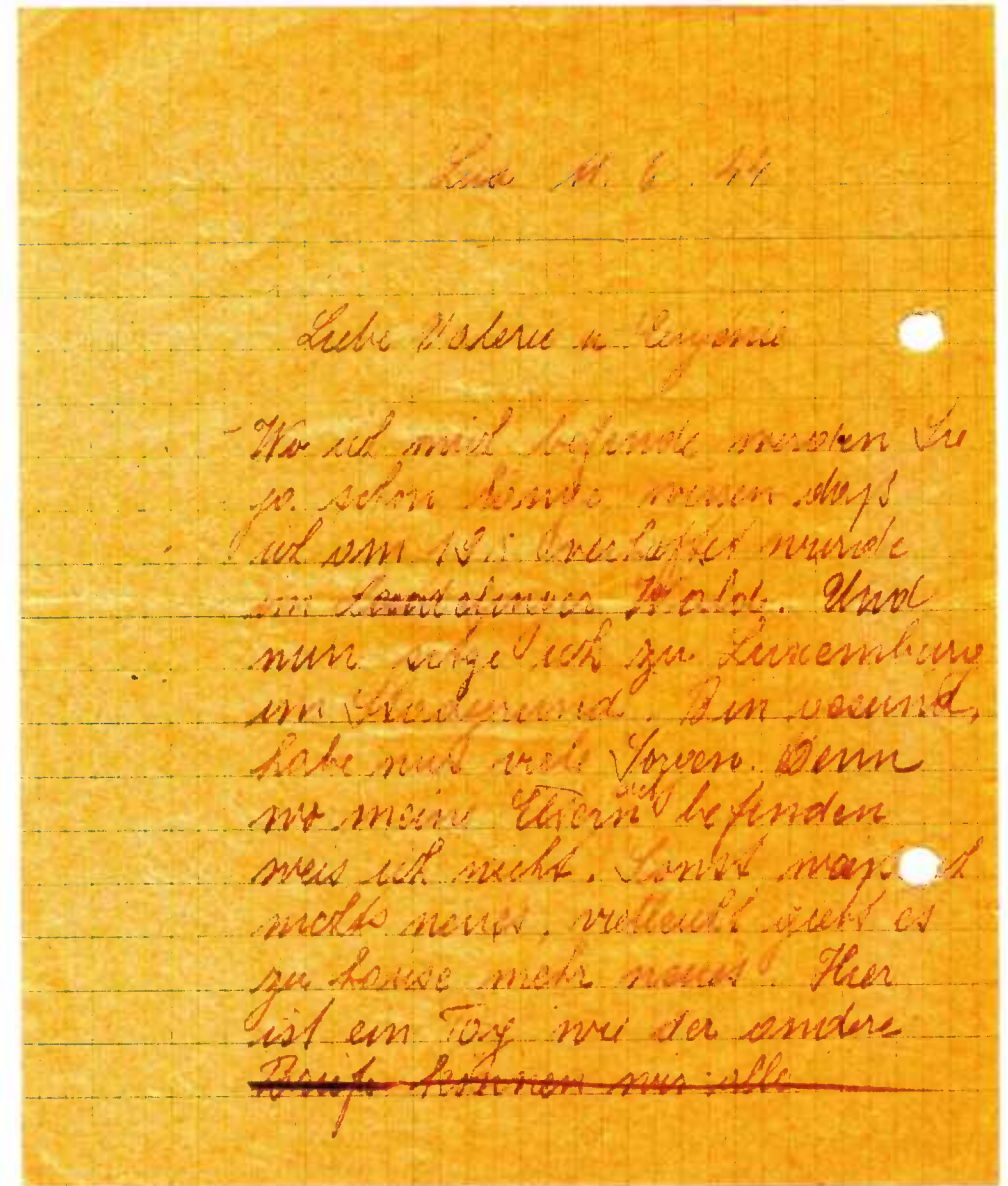 Lux 11. 6. 44
Liebe Valerie u Eugenie
Wo ich mich befinde werden Sie
ja schon wissen dass
ich am verhaftet wurde
im Walde. Und
nun ich zu Luxemburg
im Stadtgrund. Bin gesund,
habe nur viele Sorgen. Denn
wo meine Eltern sich befinden
weis ich nicht. Sonst
nichts neues, vielleicht giebt es
zu hause mehr neues. Hier
ist ein Tag wie der andere
Briefe können wir alle